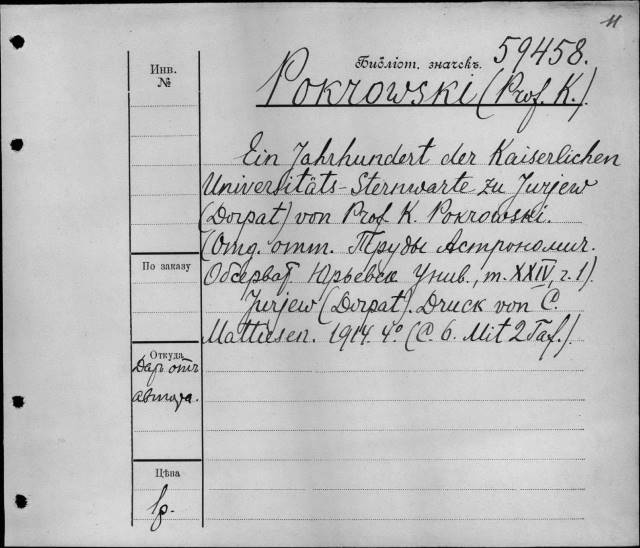 11
Библіот. значекъ. 59458.
Инв.
№
Pokrowski (Prof. K.).
Ein Jahrhundert der Kaiserlichen
Universitäts-Sternwarte zu Jurjew
(Dorpat) von Prof. K. Pokrowski.
(Отд. отт. Труды Астрономич.
По заказу
Обсерват. Юрьевск. Унив., т. XXIV, г. 1).
Jurjew (Dorpat). Druck von C.
Mattiesen. 1914. 4° (С. 6. Mit 2 Taf.).
Откуда
Даръ отъ
автора.
Цѣна
1р.